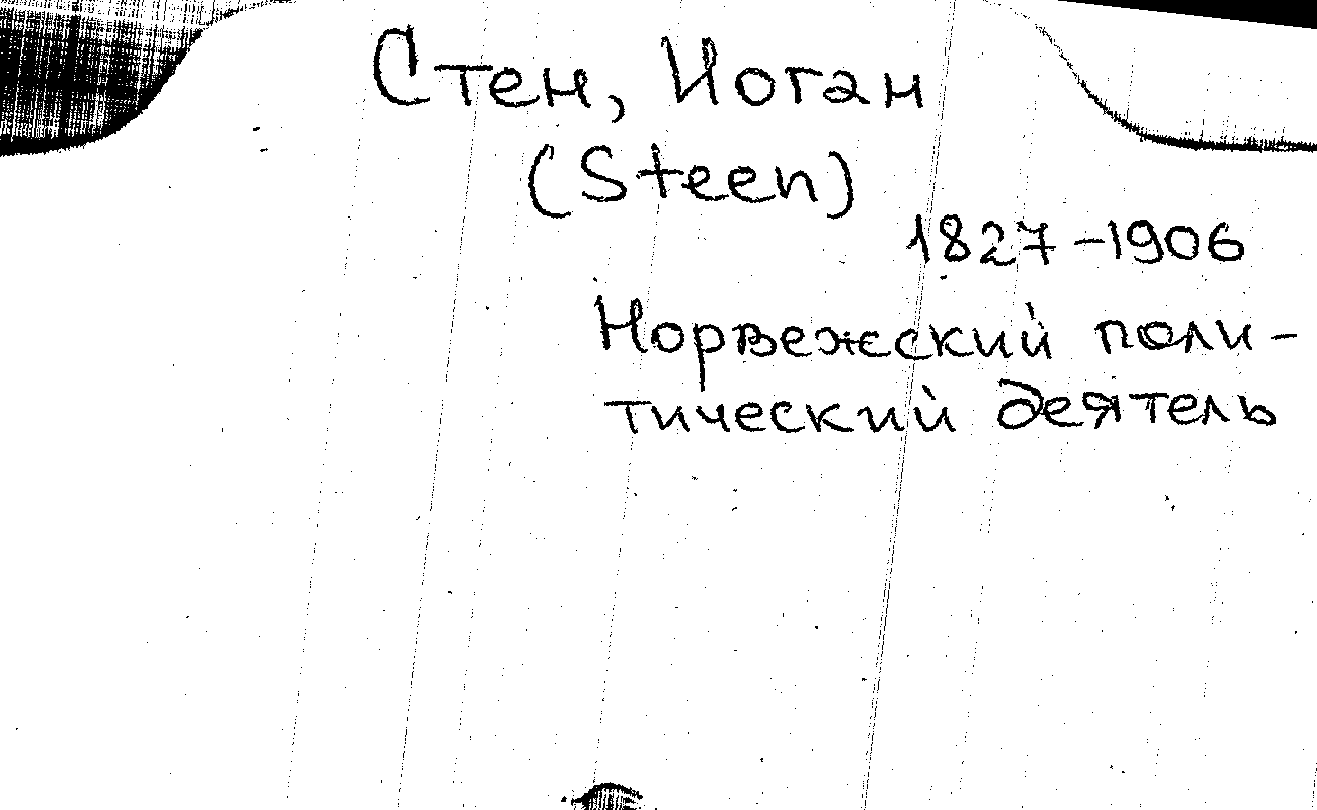 Стен, Иоган
(Steen)
1827-1906
Норвежский поли-
тический деятель